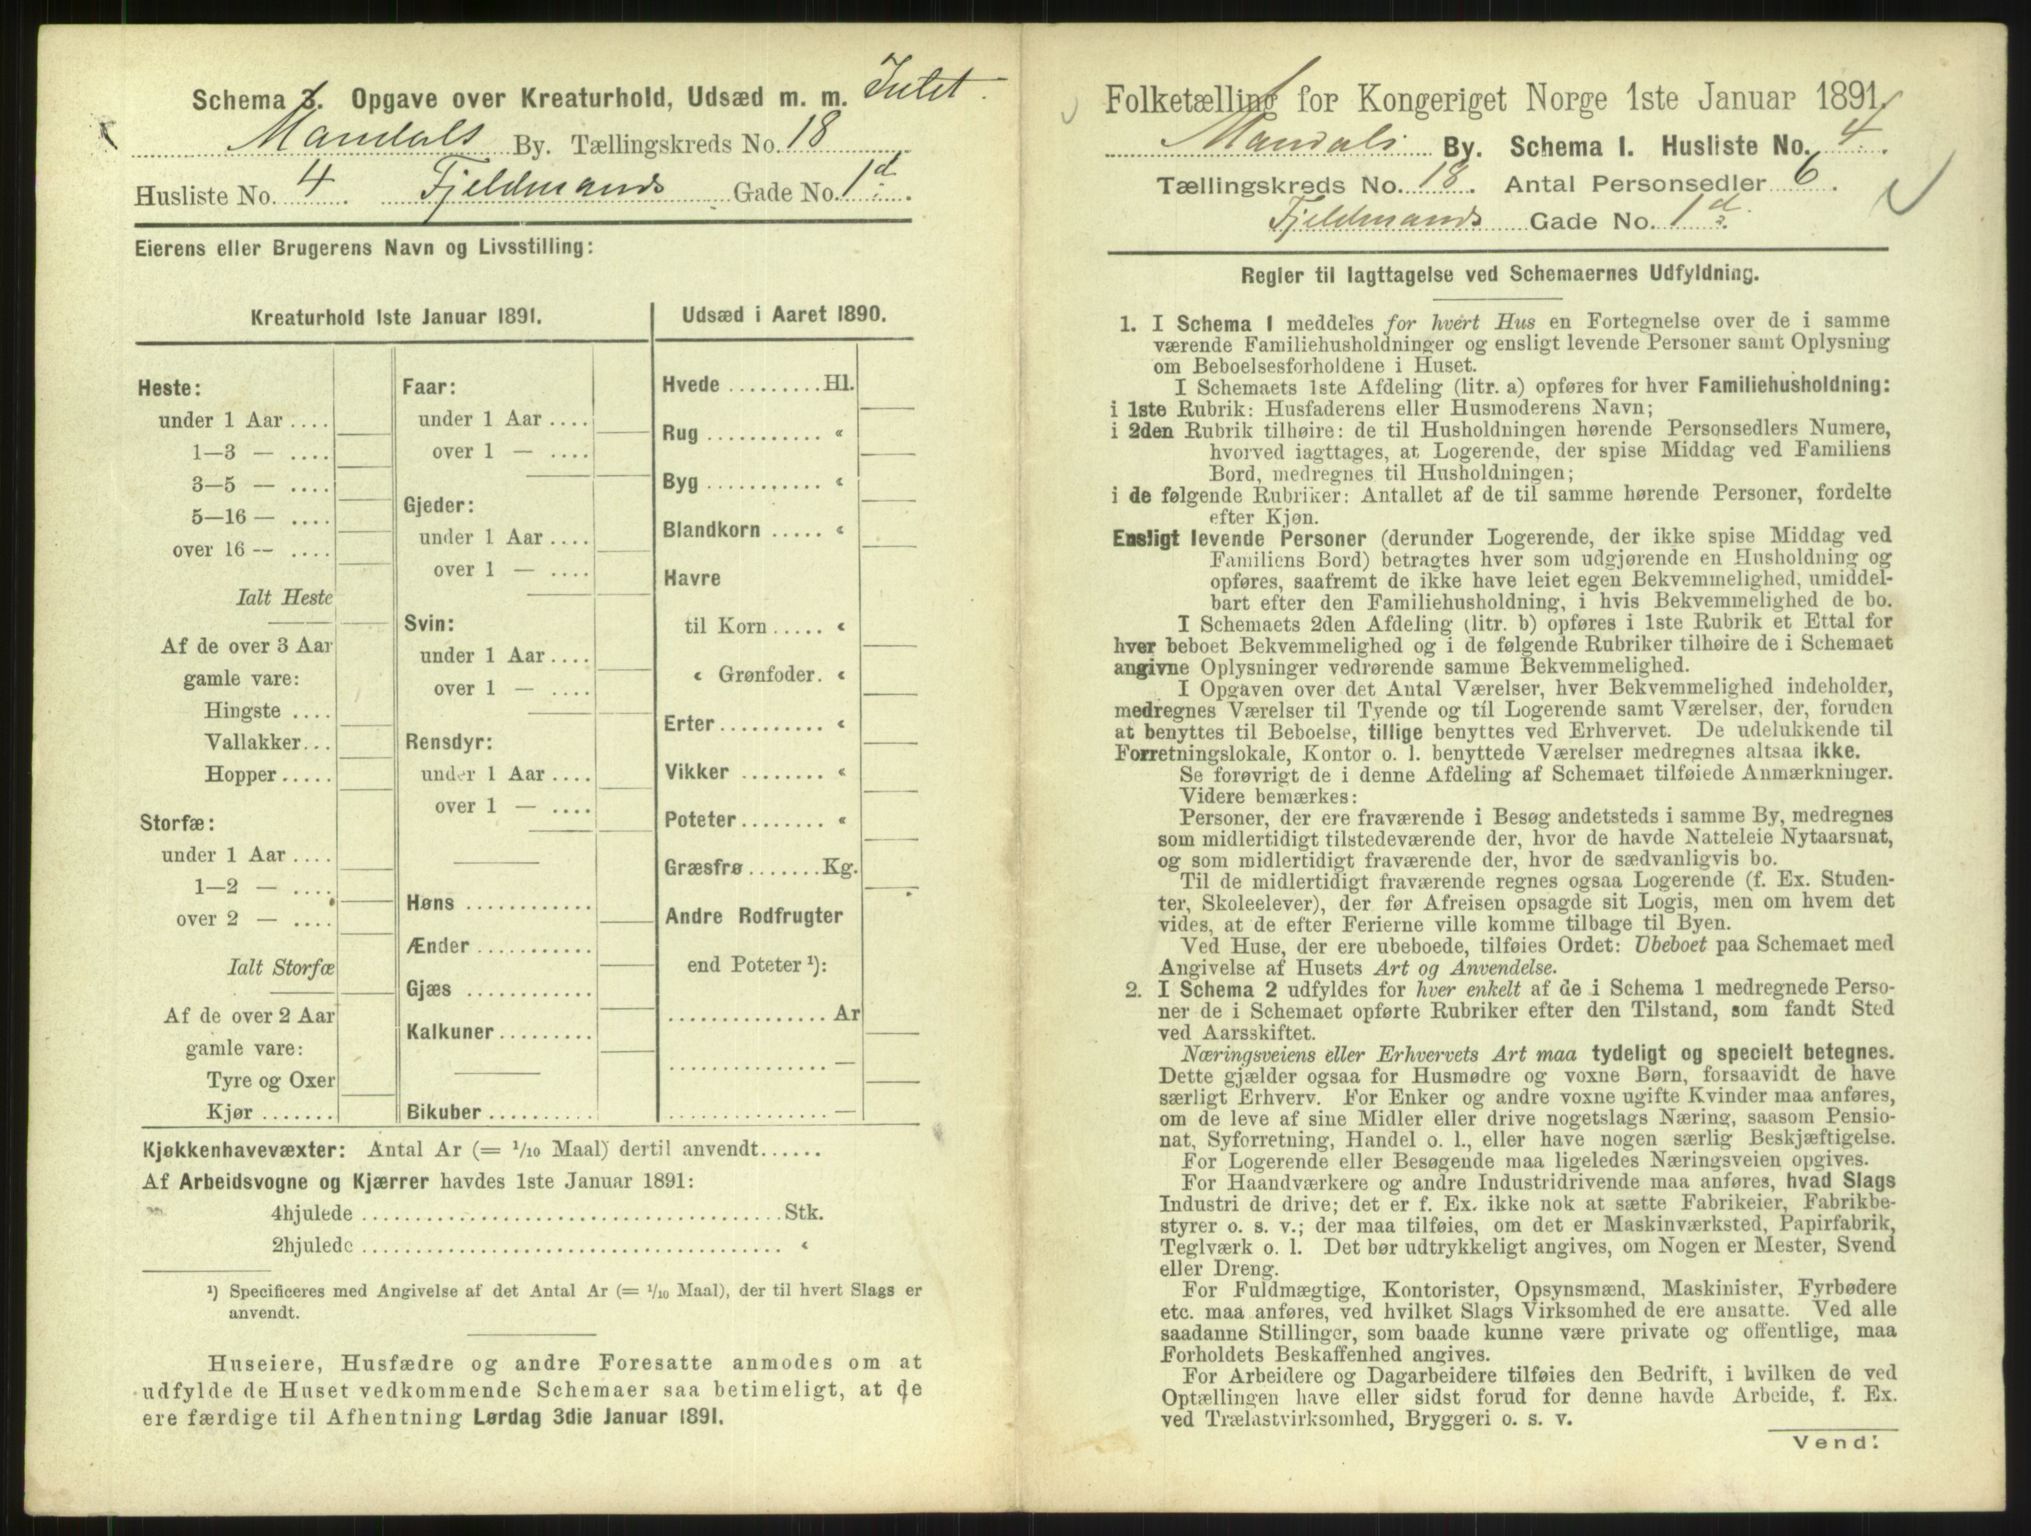 Schema 3. Opgave over Kreaturhold, Udsæd m. m. Intet.
Mandals By. Tællingskreds No. 18
Husliste No. 4 Fjeldmands Gade No. 1d
Eierens eller Brugerens Navn og Livsstilling:
Kreaturhold 1ste Januar 1891.
Heste:
under 1 Aar ....
1—3 — ....
3—5 — ....
5—16 — ....
over 16 — ....
Ialt Heste
Af de over 3 Aar
gamle vare:
Hingste ....
Vallakker...
Hopper.....
Storfæ:
under 1 Aar ....
1—2 — ....
over 2 — ....
Ialt Storfæ
Af de over 2 Aar
gamle vare:
Tyre og Oxer
Kjør .......
Faar:
under 1 Aar ....
over 1 — ....
Gjeder:
under 1 Aar ....
over 1 — ....
Svin:
under 1 Aar ....
over 1 — ....
Rensdyr:
under 1 Aar ....
over 1 — ....
Høns ............
Ænder ...........
Gjæs ............
Kalkuner.........
Bikuber ..........
Udsæd i Aaret 1890.
Hvede .........Hl.
Rug ........... «
Byg ........... «
Blandkorn ..... «
Havre
til Korn ..... «
« Grønfoder. «
Erter.......... «
Vikker ........ «
Poteter........ «
Græsfrø .......Kg.
Andre Rodfrugter
end Poteter ¹):
............... Ar
............... —
............... —
Kjøkkenhavevæxter: Antal Ar (= 1/10 Maal) dertil anvendt......
Af Arbeidsvogne og Kjærrer havdes 1ste Januar 1891:
4hjulede ........................................Stk.
2hjulede ........................................ «
¹) Specificeres med Angivelse af det Antal Ar (= 1/10 Maal), der til hvert Slags er
anvendt.
Huseiere, Husfædre og andre Foresatte anmodes om at
udfylde de Huset vedkommende Schemaer saa betimeligt, at de
ere færdige til Afhentning Lørdag 3die Januar 1891.
Folketælling for Kongeriget Norge 1ste Januar 1891.
Mandals By. Schema 1. Husliste No. 4.
Tællingskreds No. 18. Antal Personsedler 6.
Fjeldmands Gade No. 1d.
Regler til Iagttagelse ved Schemaernes Udfyldning.
1. I Schema 1 meddeles for hvert Hus en Fortegnelse over de i samme
værende Familiehusholdninger og ensligt levende Personer samt Oplysning
om Beboelsesforholdene i Huset.
I Schemaets 1ste Afdeling (litr. a) opføres for hver Familiehusholdning:
i 1ste Rubrik: Husfaderens eller Husmoderens Navn;
i 2den Rubrik tilhøire: de til Husholdningen hørende Personsedlers Numere,
hvorved iagttages, at Logerende, der spise Middag ved Familiens
Bord, medregnes til Husholdningen;
i de følgende Rubriker: Antallet af de til samme hørende Personer, fordelte
efter Kjøn.
Ensligt levende Personer (derunder Logerende, der ikke spise Middag ved
Familiens Bord) betragtes hver som udgjørende en Husholdning og
opføres, saafremt de ikke have leiet egen Bekvemmelighed, umiddel-
bart efter den Familiehusholdning, i hvis Bekvemmelighed de bo.
I Schemaets 2den Afdeling (litr. b) opføres i 1ste Rubrik et Ettal for
hver beboet Bekvemmelighed og i de følgende Rubriker tilhøire de i Schemaet
angivne Oplysninger vedrørende samme Bekvemmelighed.
I Opgaven over det Antal Værelser, hver Bekvemmelighed indeholder,
medregnes Værelser til Tyende og til Logerende samt Værelser, der, foruden
at benyttes til Beboelse, tillige benyttes ved Erhvervet. De udelukkende til
Forretningslokale, Kontor o. l. benyttede Værelser medregnes altsaa ikke.
Se forøvrigt de i denne Afdeling af Schemaet tilføiede Anmærkninger.
Videre bemærkes:
Personer, der ere fraværende i Besøg andetsteds i samme By, medregnes
som midlertidigt tilstedeværende der, hvor de havde Natteleie Nytaarsnat,
og som midlertidigt fraværende der, hvor de sædvanligvis bo.
Til de midlertidigt fraværende regnes ogsaa Logerende (f. Ex. Studen-
ter, Skoleelever), der før Afreisen opsagde sit Logis, men om hvem det
vides, at de efter Ferierne ville komme tilbage til Byen.
Ved Huse, der ere ubeboede, tilføies Ordet: Ubeboet paa Schemaet med
Angivelse af Husets Art og Anvendelse.
2. I Schema 2 udfyldes for hver enkelt af de i Schema 1 medregnede Perso-
ner de i Schemaet opførte Rubriker efter den Tilstand, som fandt Sted
ved Aarsskiftet.
Næringsveiens eller Erhvervets Art maa tydeligt og specielt betegnes.
Dette gjælder ogsaa for Husmødre og voxne Børn, forsaavidt de have
særligt Erhverv. For Enker og andre voxne ugifte Kvinder maa anføres,
om de leve af sine Midler eller drive nogetslags Næring, saasom Pensio-
nat, Syforretning, Handel o. l., eller have nogen særlig Beskjæftigelse.
For Logerende eller Besøgende maa ligeledes Næringsveien opgives.
For Haandværkere og andre Industridrivende maa anføres, hvad Slags
Industri de drive; det er f. Ex. ikke nok at sætte Fabrikeier, Fabrikbe-
styrer o. s. v.; der maa tilføies, om det er Maskinværksted, Papirfabrik,
Teglværk o. l. Det bør udtrykkeligt angives, om Nogen er Mester, Svend
eller Dreng.
For Fuldmægtige, Kontorister, Opsynsmænd, Maskinister, Fyrbødere
etc. maa anføres, ved hvilket Slags Virksomhed de ere ansatte. Ved alle
saadanne Stillinger, som baade kunne være private og offentlige, maa
Forholdets Beskaffenhed angives.
For Arbeidere og Dagarbeidere tilføies den Bedrift, i hvilken de ved
Optællingen have eller sidst forud for denne havde Arbeide, f. Ex.
ved Trælastvirksomhed, Bryggeri o. s. v.
Vend.